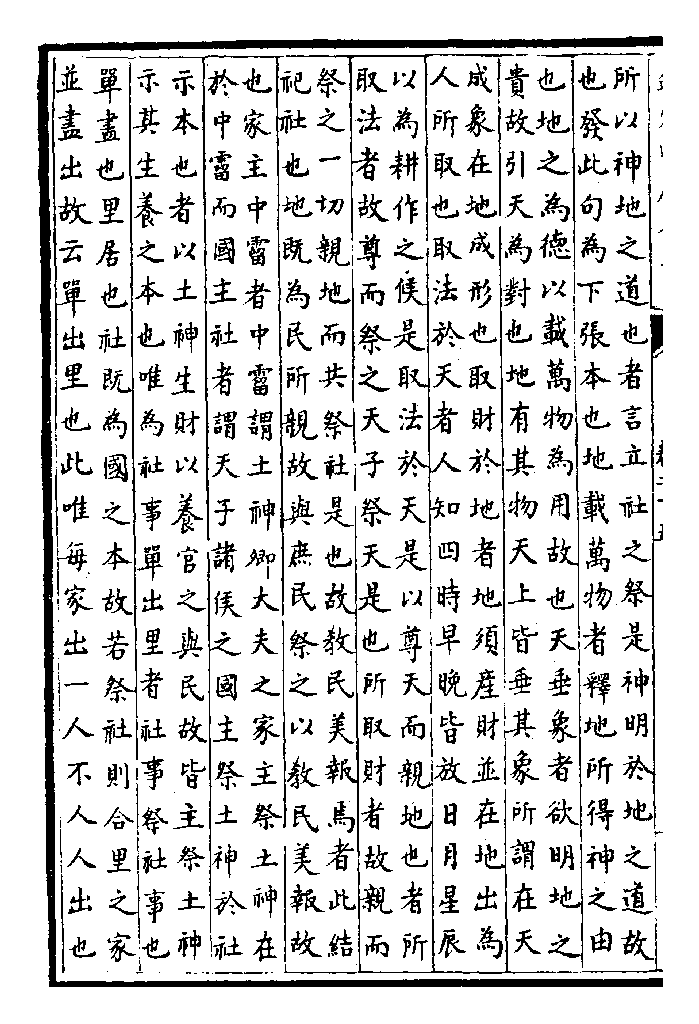 所以神地之道也者言立社之祭是神明於地之道故
也發此句為下張本也地載萬物者釋地所得神之由
也地之為德以載萬物為用故也天垂象者欲明地之
貴故引天為對也地有其物天上皆垂其象所謂在天
成象在地成形也取財於地者地須產財並在地出為
人所取也取法於天者人知四時早晚皆放日月星辰
以為耕作之候是取法於天是以尊天而親地也者所
取法者故尊而祭之天子祭天是也所取財者故親而
祭之一切親地而共祭社是也故教民美報焉者此結
祀社也地既為民所親故與庶民祭之以教民美報故
也家主中霤者中霤謂土神卿大夫之家主祭土神在
於中霤而國主社者謂天子諸侯之國主祭土神於社
示本也者以土神生財以養官之與民故皆主祭土神
示其生養之本也唯為社事單出里者社事祭社事也
單盡也里居也社既為國之本故若祭社則合里之家
並盡出故云單出里也此唯每家出一人不人人出也